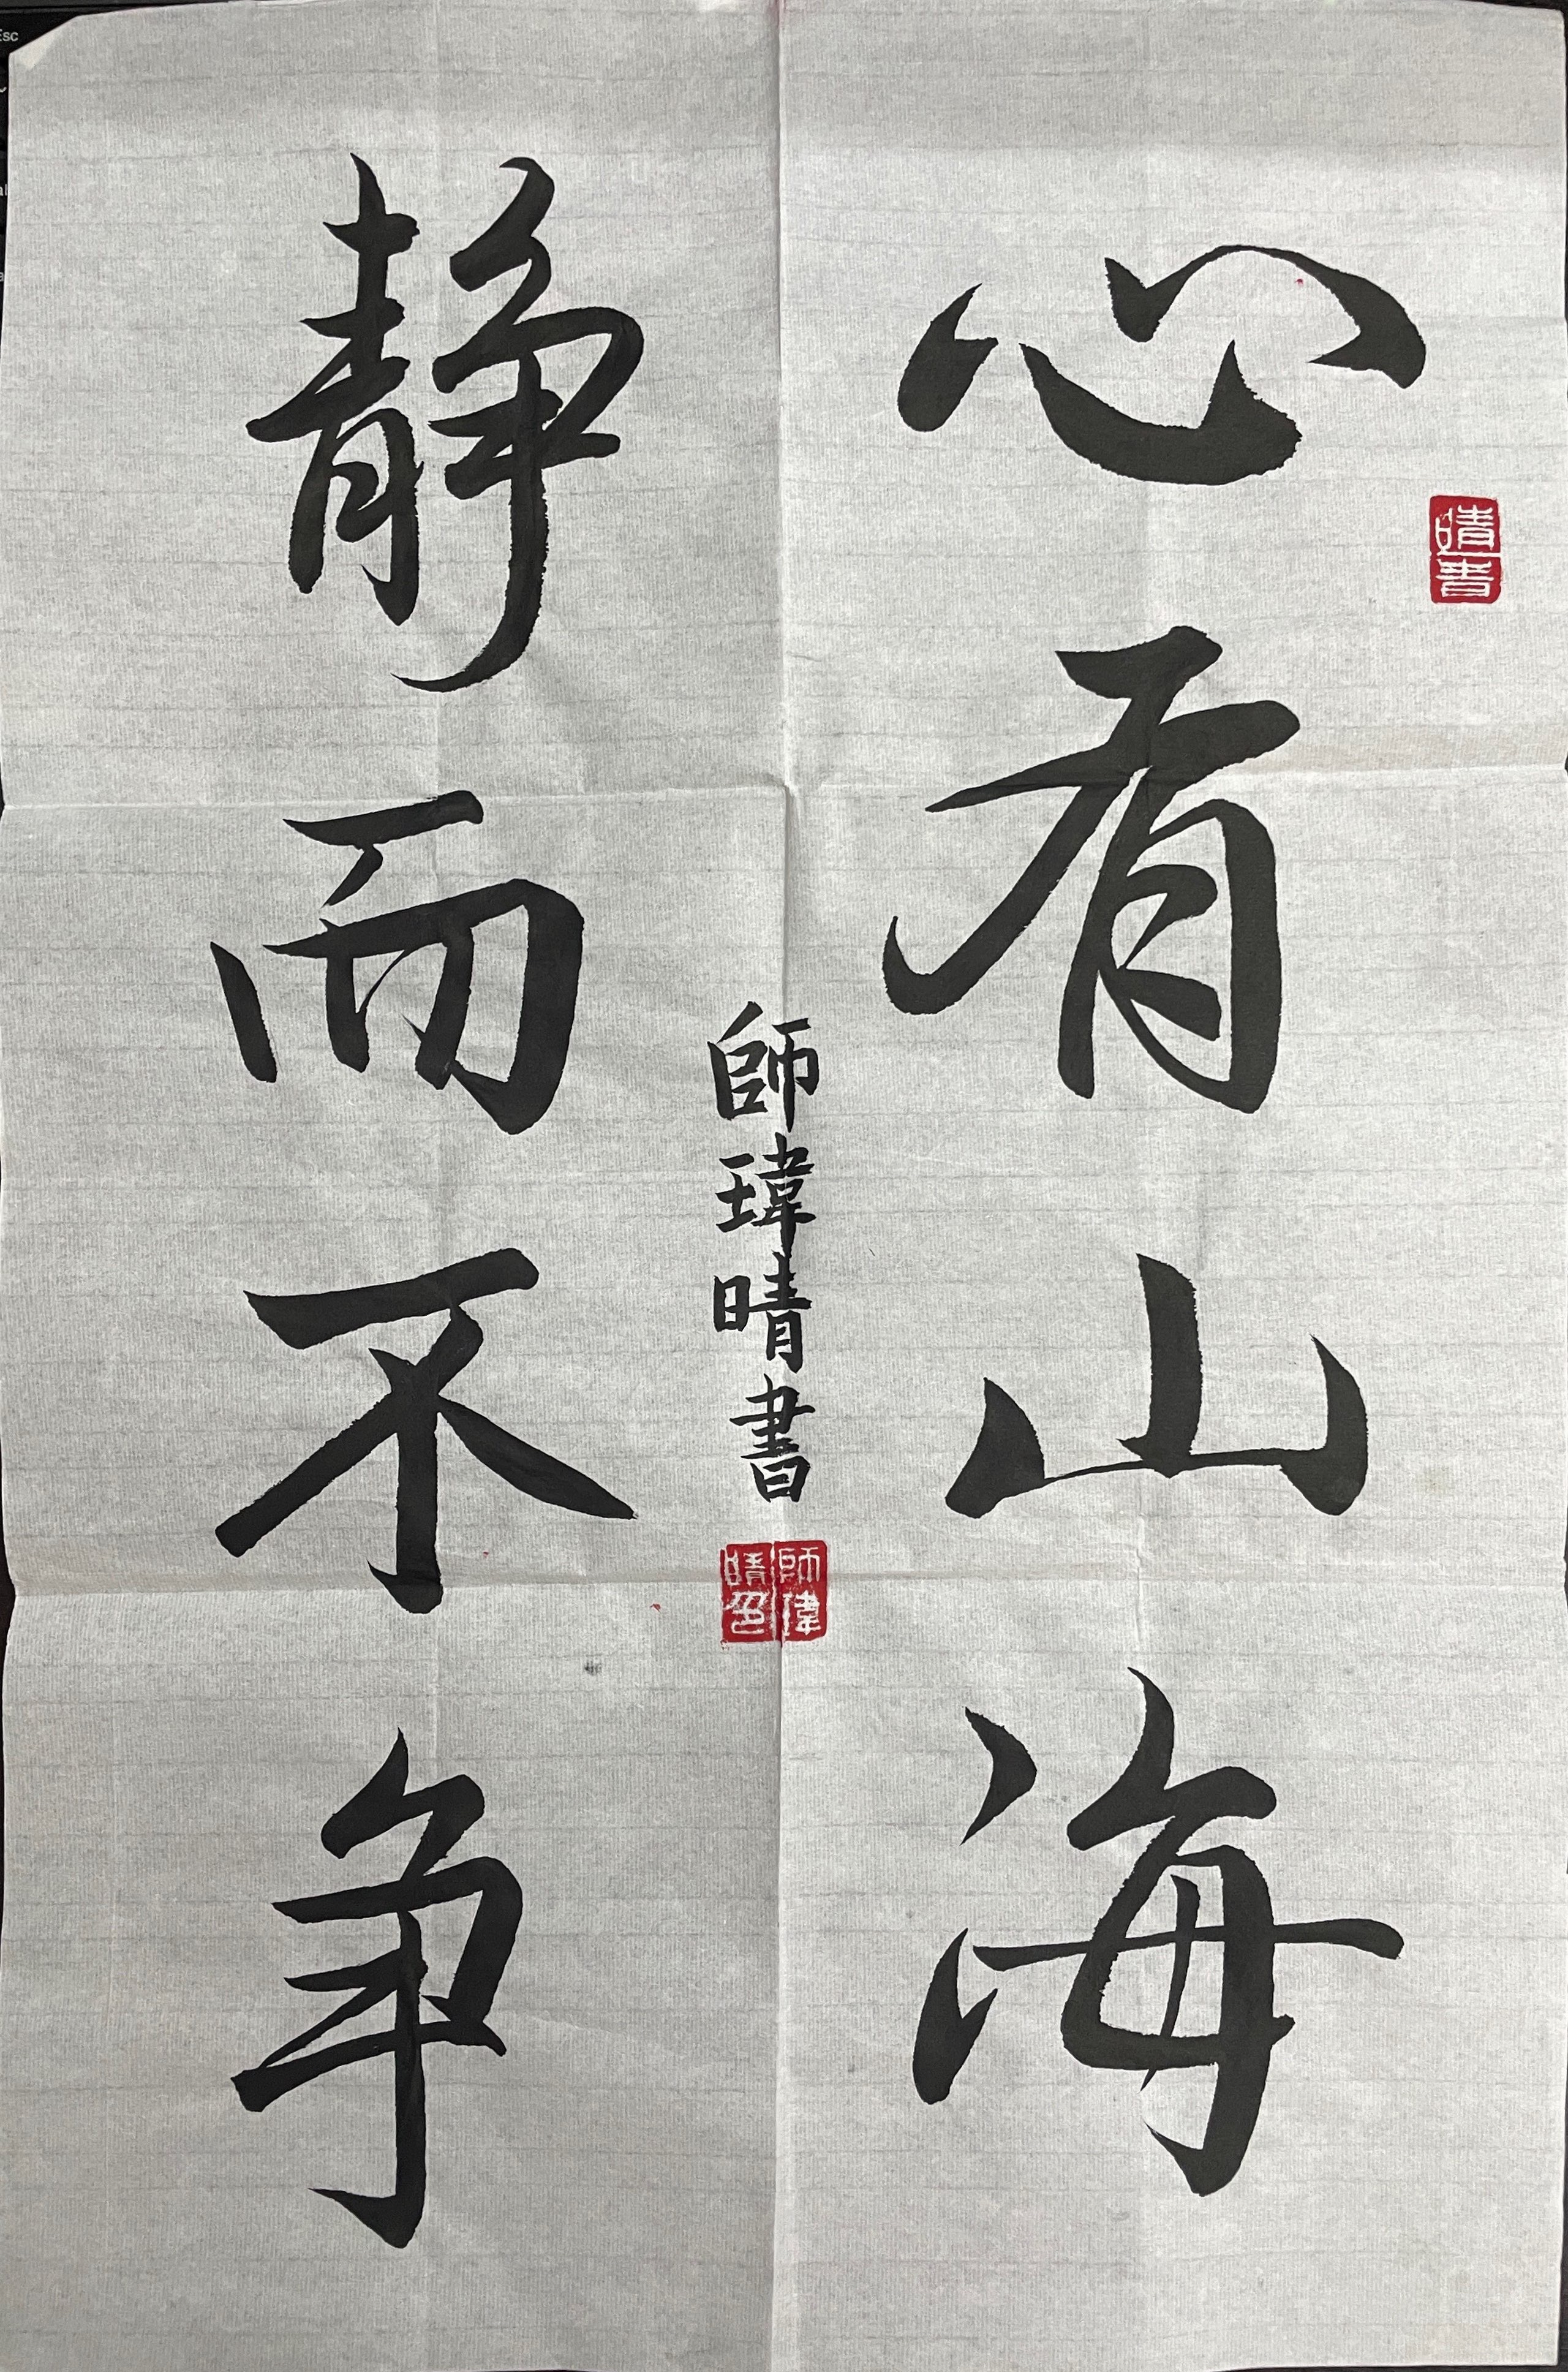 晴書
心有山海
静而不争
師瑋晴書
師瑋
晴印